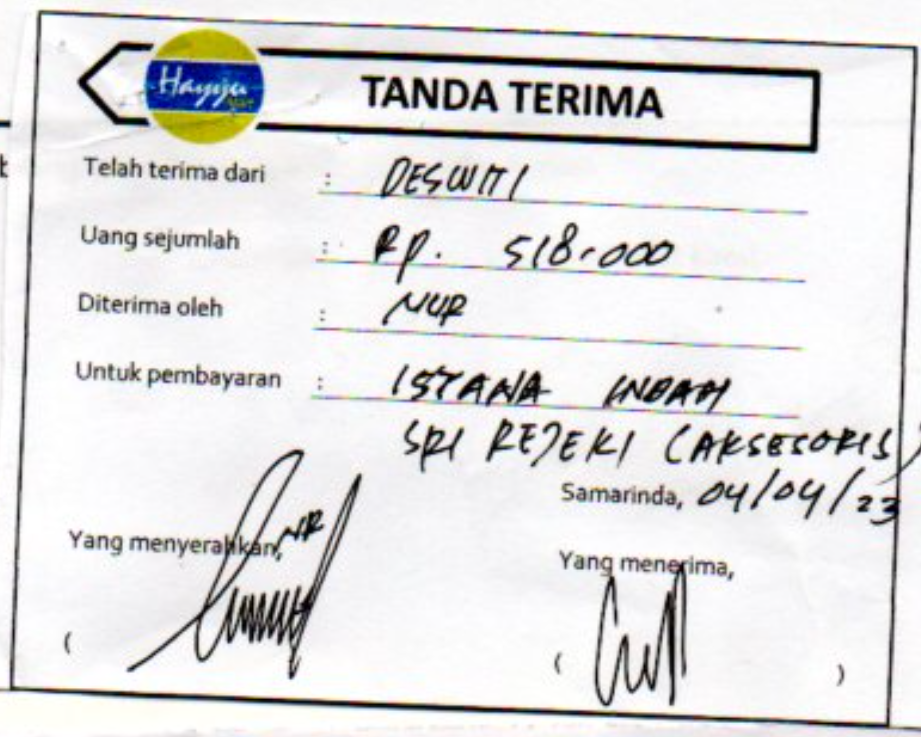 Hayyju
TANDA TERIMA
Telah terima dari : DESWITI
Uang sejumlah : RP. 518.000
Diterima oleh : NUR
Untuk pembayaran : ISTANA INDAH
SRI REJEKI (AKSESORIS)
Samarinda, 04/04/23
Yang menyerahkan,
Yang menerima,
( ( )